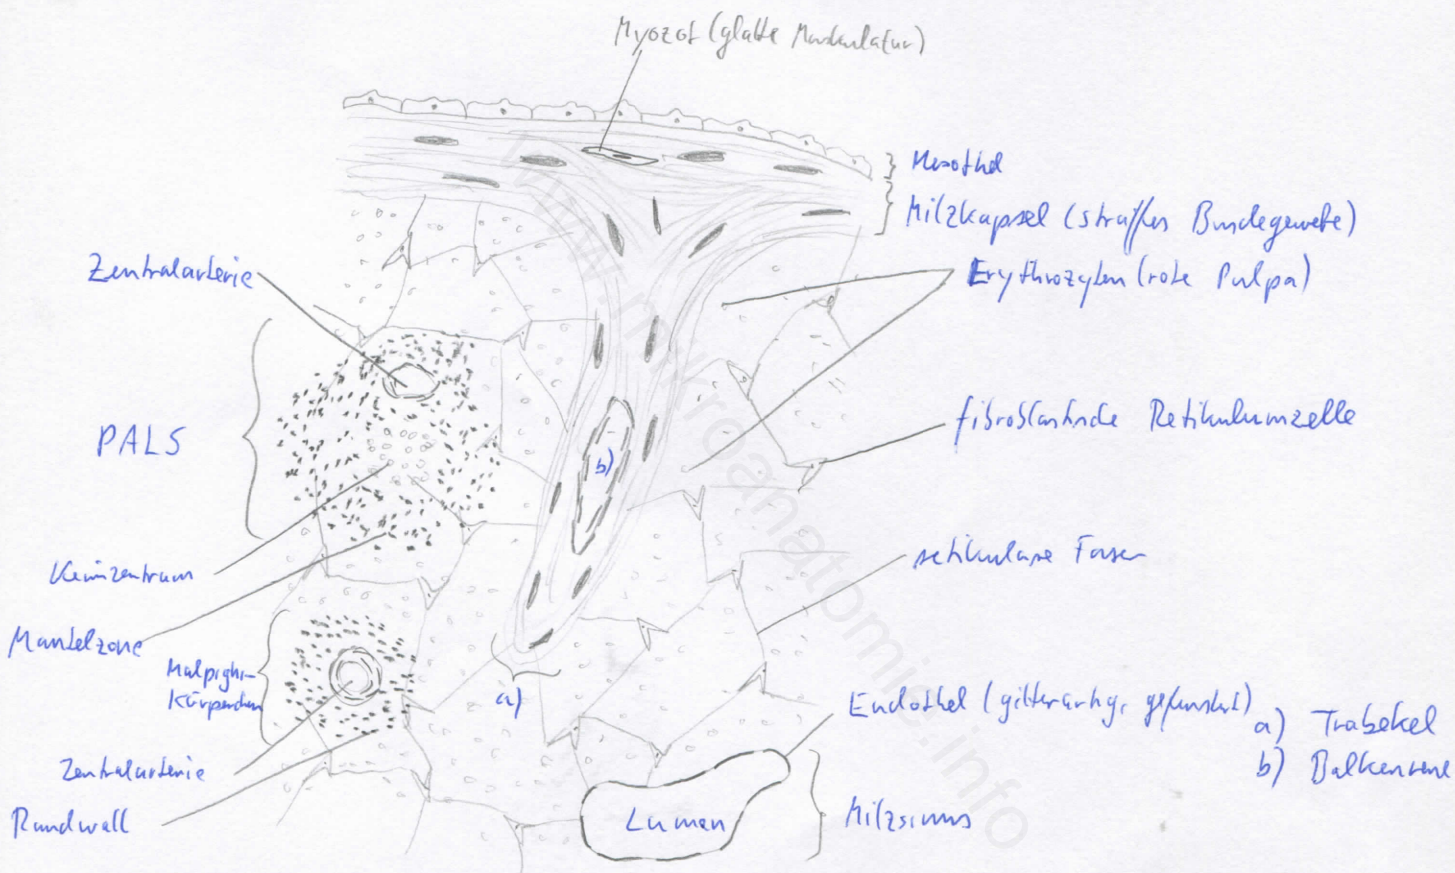 Myozot (glatte Muskulatur)
Mesothel
Milzkapsel (straffes Bindegewebe)
Zentralarterie
Erythrozyten (rote Pulpa)
fibroblastische Retikulumzelle
PALS
b)
Keimzentrum
retikuläre Faser
Mantelzone
Malpighi-
Körperchen
a)
Endothel (gitterartig, gefenstert)
a) Trabekel
b) Balkenvene
Zentralarterie
Randwall
Lumen
Milzsinus
www.mikroanatomie.info